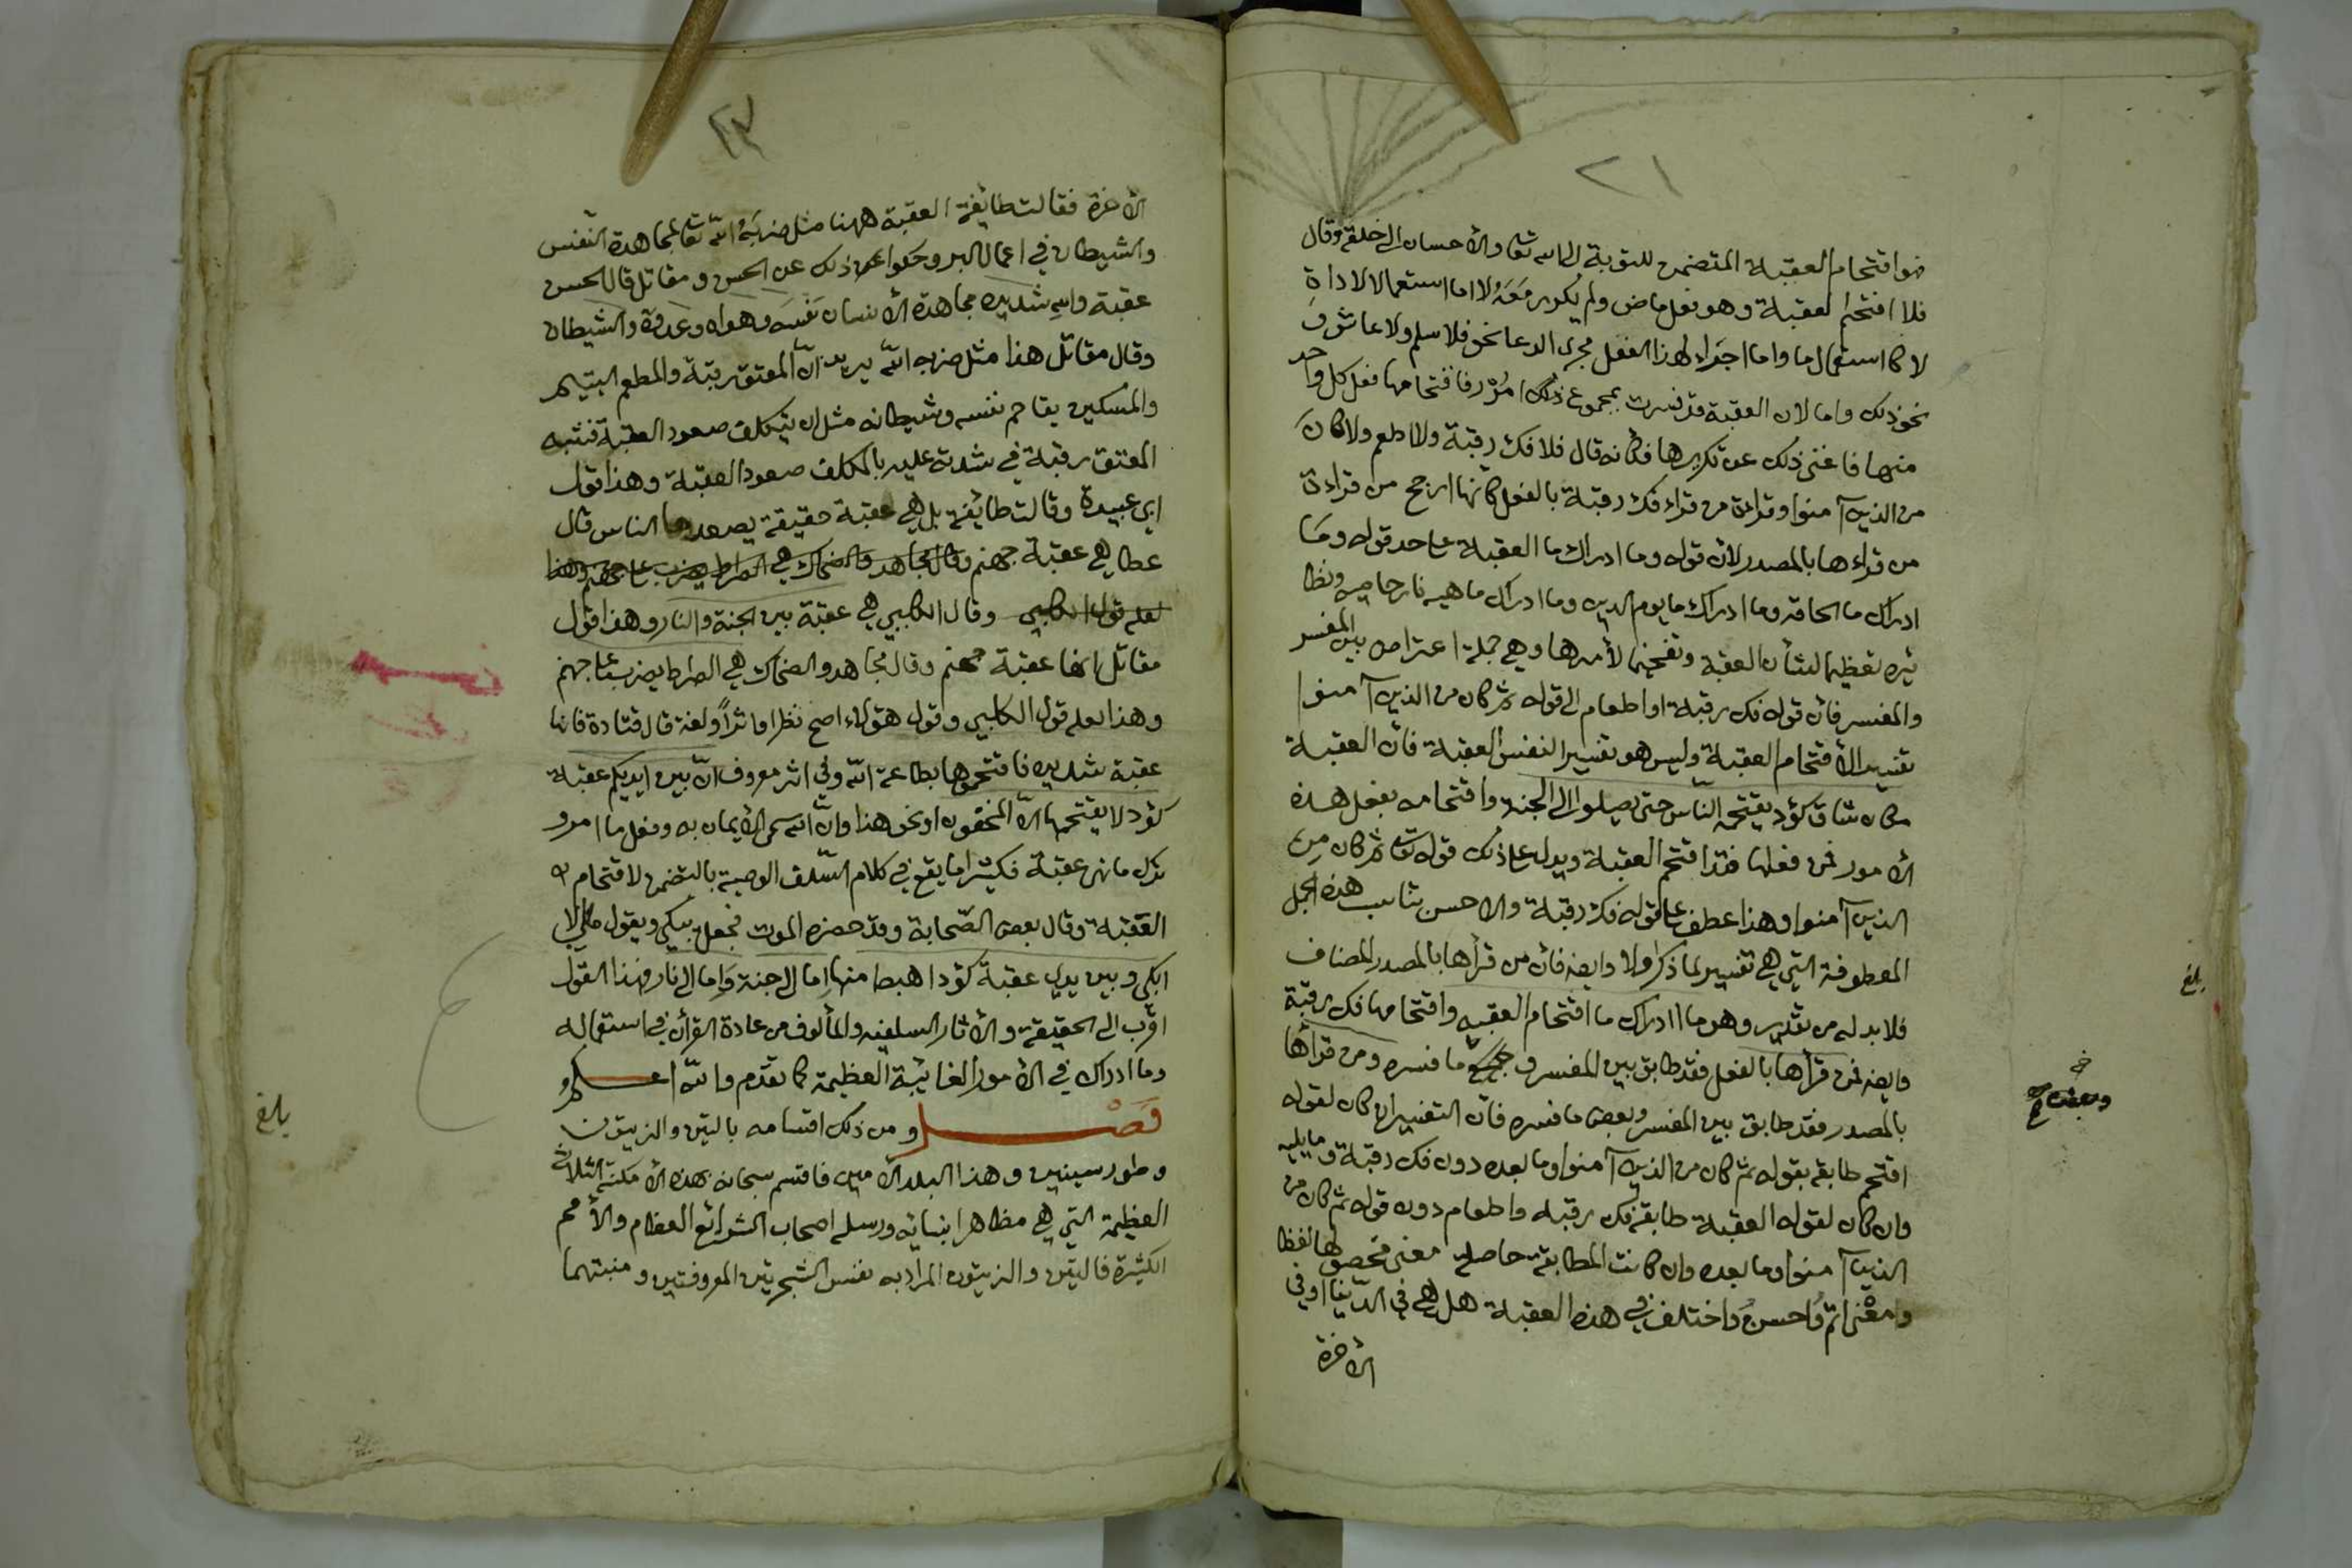 ٢١
هو اقتحام العقبة المتضمن للتوبة الى الله تعا والأحسان الى خلقه وقال
فلا اقتحم العقبة وهو فعل ماض ولم يكرر مَعَهُ لا اما استعمالا لاداة
لا كاستعمال ما واما اجراء لهذا الفعل مجرى الدعا نحو فلا سلم ولا عاش وَ
نحو ذلك واما لان العقبة قد فسرت بمجموع ذلك امُوْر فاقتحامها فعل كل واحد
منها فاغنى ذلك عن تكريرها فكانه قال فلا فك رقبة ولا اطعم ولا كانَ
من الذين آمنوا وقراءة من قراء فك رقبة بالفعل كانها ارجح من قراءة
من قراءها بالمصدر لان قوله وما ادراك ما العقبة على حد قوله ومَا
ادراك ما الحاقه وما ادراك ما يوم الدين وما ادراك ماهيه نار حاميه ونظا
ئره تعظيما لشأن العقبة وتفخيما لأمرها وهي جملة اعتراض بين المفسر
والمفسر فان قوله فك رقبة او اطعام الى قوله ثم كان من الذين آمنوا
تفسير الأقتحام العقبة وليس هو تفسير النفس العقبة فان العقبة
مكان شاق كؤد يقتحمه النّاس حتى يصلوا الى الجنة واقتحامه بفعل هذه
الأمور فمن فعلها فقد اقتحم العقبة ويدل على ذلك قوله تعا ثم كان من
الذين آمنوا وهذا عطف على قوله فك رقبة والاحسن تناسب هذه الجمل
المعطوفة التي هي تفسير لما ذكر اولا وايضه فان من قرأها بالمصدر المضاف
فلا بد له من تقدير وهو ما ادراك ما اقتحام العقبه واقتحامها فك رقبة
وايضه فمن قرأها بالفعل فقد طابق بين المفسر و ما فسره ومن قرأها
بالمصدر فقد طابق بين المفسر وبعض ما فسره فان التفسير ان كان لقوله
اقتحم طابقه بقوله ثم كان من الذين آمنوا وما بعده دون فك رقبة وما يليه
وان كان لقوله العقبة طابقه فك رقبه واطعام دون قوله ثم كان من
الذين آمنوا وما بعده وان كانت المطابقة حاصلة معنى فحصولها لفظا
ومعْنى اتم وُاحسن وَاختلف في هذه العقبة هل هي في الدّنيا اوفي
الأخرة
بلغ
٢٢
الأخرة فقالت طائفة العقبة ههنا مثل ضربَهُ اللّه تعا لمجاهدة النّفس
والشيطان في اعمال البر وحكوا عن ذلك عن الحسن ومقاتل قال الحسن
عقبة والله شديده مجاهدة الأنسان نفسَه وهواه وعَدوَّه والشيطان
وقال مقاتل هذا مثل ضربه اللّه يريد انّ المعتق رقبة والمطعم اليتيم
والمسكين يقاحم نفسه وشيطانه مثل ان يتكلف صعود العقبة فشبه
المعتق رقبة في شدته عليه بالمكلف صعود العقبة وهذا قول
ابي عبيدة وقالت طائفة بل هي عقبة حقيقة يصعدها الناس قال
عطا هي عقبة جهنم وقال مجاهد والضحاك هي الصراط يضرب على جهنم وهذا
لعله قول الكلبي وقال الكلبي هي عقبة بين الجنة والنار وهذا قول
مقاتل انها عقبة جهنم وقال مجاهد والضحاك هي الصراط يضرب على جهنم
وهذا لعله قول الكلبي وقول هؤلاء اصح نظرا واثراً ولغة قال قتادة فانها
عقبة شديده فاقتحموها بطاعة اللّه وفي اثر معروف انّ بين ايديكم عقبة
كؤد لا يقتحمها الّا المخفون او نحو هذا وانّ اللّه سمى الأيمان به وفعل ما امر و
ترك ما نهى عقبة فكثيرا ما يقع في كلام السّلف الوصية بالتضمر لاقتحام
العقبة وقال بعض الصّحابة وقد حضره الموت فجعل يبكي ويقول مالي لا
ابكي وبين يدي عقبة كؤد اهبط منها اما الى جنة وَاِما الى نار فهذا القول
اقرب الى الحقيقة والأثار السلفيه والمألوف من عادة القرأن في استعماله
وما ادراك في الأمور الغائبة العظيمة كما تقدم واللّه اعلم
فَصْل و من ذلك اقسامه بالتين والزيتون
وطور سينين وهذا البلد الأمين فاقسم سبحانه بهذه الأمكنة الثلاثة
العظيمة التي هي مظاهر انبيائه ورسله اصحاب الشرائع العظام والأمم
الكثيرة فالتين والزيتون المراد به نفس الشجرتين المعروفتين ومنبتهما
بلغ